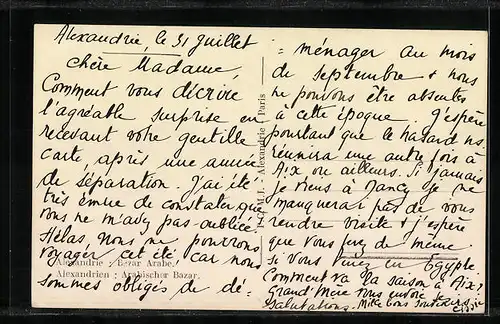 Alexandrie, le 31 juillet
Chère Madame,
Comment vous décrire
l'agréable surprise en
recevant votre gentille
carte, après une année
de séparation. J'ai été
très émue de constater que
vous ne m'avez pas oubliée.
Hélas, nous ne pourrons
voyager cet été car nous
sommes obligés de dé-
= ménager au mois
de septembre & nous
ne pouvons être absents
à cette époque. J'espère
pourtant que le hasard ns.
réunira une autre fois à
Aix ou ailleurs. Si jamais
je viens à Nancy je ne
manquerai pas de vous
rendre visite & j'espère
que vous ferez de même
si vous venez en Egypte.
Comment va la saison à Aix?
Grand'Mère vous envoie ses
salutations. Mille bons souvenirs
Cissie
Alexandrie : Bazar Arabe.
Alexandrien : Arabischer Bazar.
Alexandrie - Paris